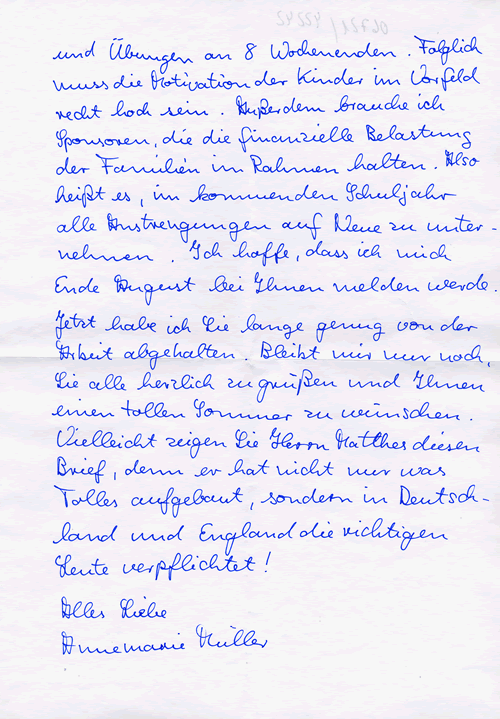 und Übungen an 8 Wochenenden. Folglich
muss die Motivation der Kinder im Vorfeld
recht hoch sein. Außerdem brauche ich
Sponsoren, die die finanzielle Belastung
der Familien im Rahmen halten. Also
heißt es, im kommenden Schuljahr
alle Anstrengungen auf Neue zu unter-
nehmen. Ich hoffe, dass ich mich
Ende August bei Ihnen melden werde.
Jetzt habe ich Sie lange genug von der
Arbeit abgehalten. Bleibt mir nur noch,
Sie alle herzlich zu grüßen und Ihnen
einen tollen Sommer zu wünschen.
Vielleicht zeigen Sie Herrn Matthes diesen
Brief, denn er hat nicht nur was
Tolles aufgebaut, sondern in Deutsch-
land und England die richtigen
Leute verpflichtet!
Alles Liebe
Annemarie Müller